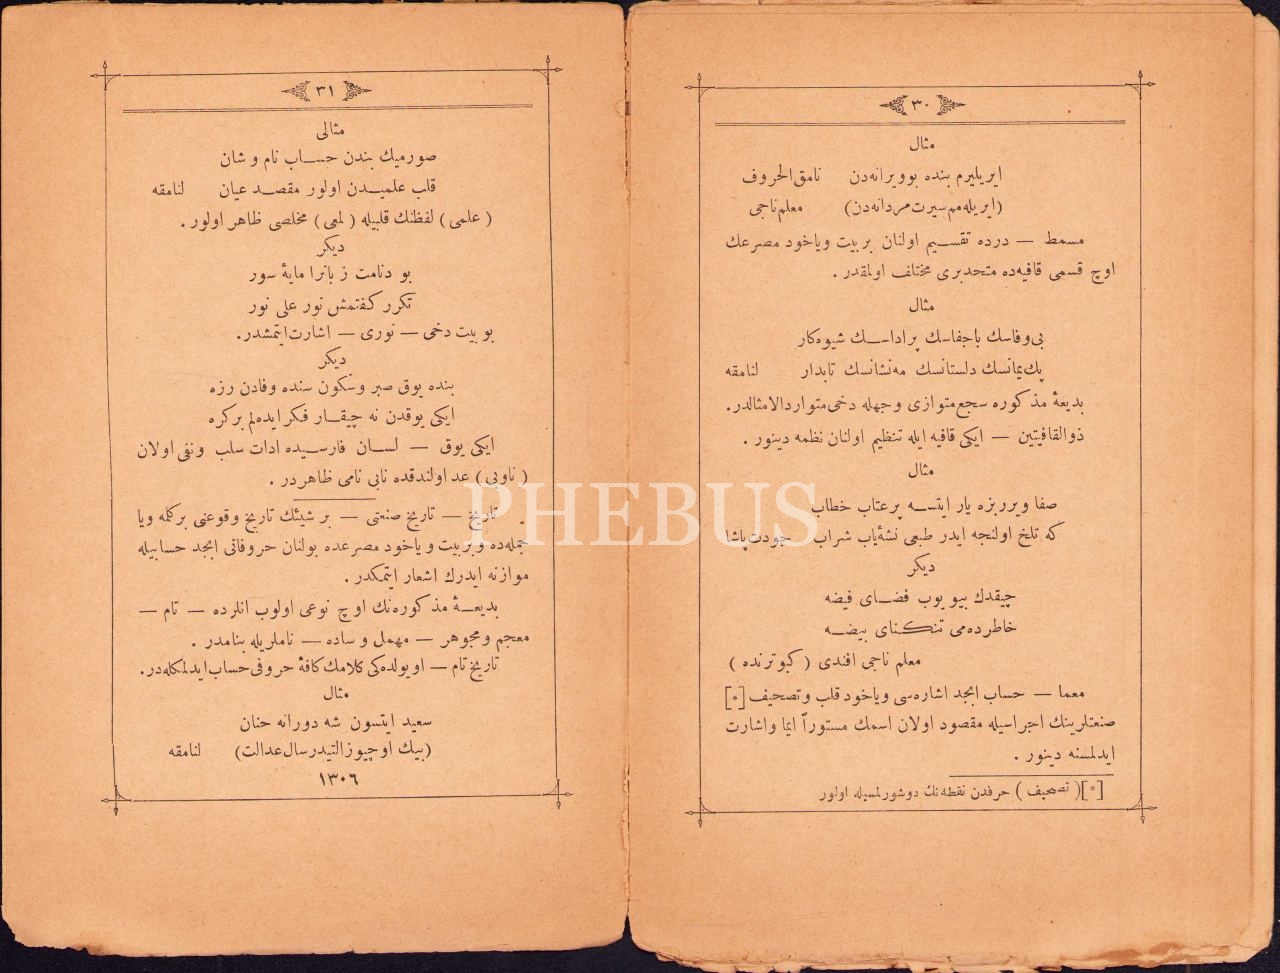 ٣٠
مثال
ايريليرم بنده بو ويرانه‌دن نامق الحروف
(ايريله‌مم سيرت مردانه‌دن) معلم ناجی
مسمط — درده تقسيم اولنان بر بيت و ياخود مصرعك
اوچ قسمی قافيه‌ده متحد بری مختلف اولمقدر .
مثال
بی وفاسك باجفاسك پر اداســك شيوه‌كار
پك يمانسك دلستانسك مه‌نشانسك تابدار لنامقه
بديعۀ مذكوره سجع متوازی وجهله دخی متوارد الامثالدر.
ذوالقافيتين — ايكی قافيه ايله تنظيم اولنان نظمه دينور .
مثال
صفا ويرر بزه يار ايتســه پر عتاب خطاب
كه تلخ اولنجه ايدر طبعی نشئه‌ياب شراب جودت پاشا
ديكر
چيقدك بيويوب فضــای فيضه
خاطرده‌می تنكنای بيضــه
معلم ناجی افندی ( كبوترنده )
معما — حساب ابجد اشاره‌سی و ياخود قلب و تصحيف [*]
صنعتلرينك اجراسيله مقصود اولان اسمك مستوراً ايما و اشارت
ايدلمسنه دينور .
[*] ( تصحيف ) حرفدن نقطه‌نك دوشورلمسيله اولور
٣١
مثالی
صورميك بندن حســاب نام و شان
قلب علميــدن اولور مقصــد عيان لنامقه
( علمی ) لفظنك قلبيله ( لمعی ) مخلصی ظاهر اولور .
ديكر
بو دنامت ز بانرا مايۀ سور
تكرر كفتمش نور علی نور
بو بيت دخی — نوری — اشارت ايتمشدر.
ديكر
بنده يوق صبر و سكون سنده وفادن رزه
ايكی يوقدن نه چيقــار فكر ايده‌لم بر كره
ايكی يوق — لســان فارسيــده ادات سلب ونفی اولان
( ناوبی ) عد اولندقده نابی نامی ظاهردر .
تاريخ — تاريخ صنعتی — بر شيئك تاريخ وقوعنی بر كلمه ويا
جمله‌ده و بر بيت و ياخود مصرعده بولنان حروفاتی ابجد حسابيله
موازنه ايدرك اشعار ايتمكدر .
بديعــۀ مذكوره‌نك اوچ نوعی اولوب انلرده — تام —
معجم ومجوهر — مهمل و ساده — ناملريله بنامدر .
تاريخ تام — او يولده‌كی كلامك كافۀ حروفی حساب ايدلمكله‌در.
مثال
سعيد ايتسون شه دورانه حنان
(بيك اوچيوز التيدر سال عدالت) لنامقه
١٣٠٦
PHEBUS